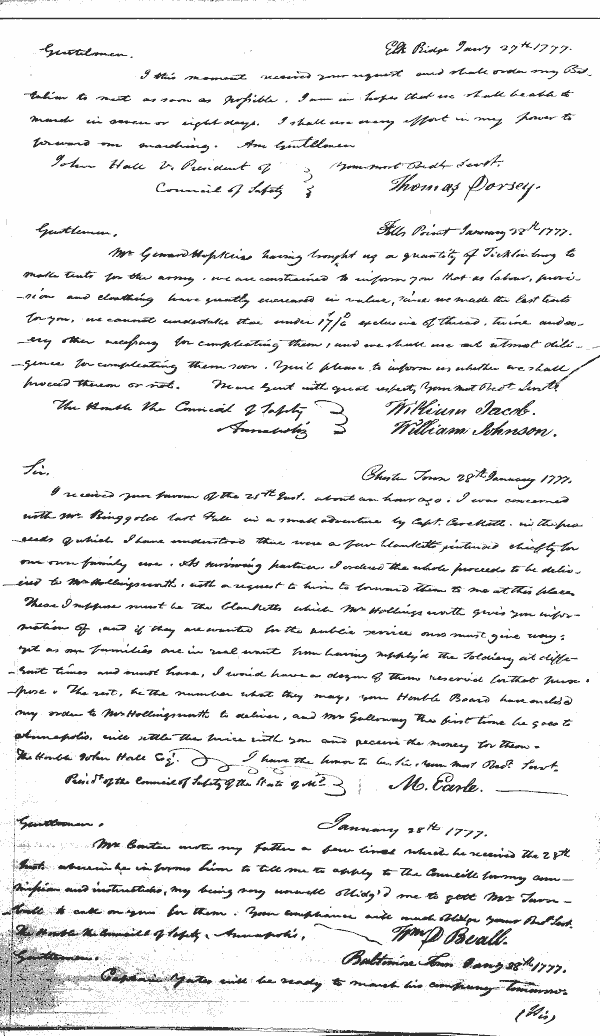 Gentlemen. Elk Ridge Jany 27th 1777.
I this moment received your request and shall order my Bat-
talion to meet as soon as possible. I am in hopes that we shall be able to
march in seven or eight days. I shall use every effort in my power to
forward our marching. Am Gentlemen
John Hall V. President of your most Obedt Servt.
Council of Safety Thomas Dorsey.
Gentlemen. Fells Point January 28th 1777.
Mr Gerard Hopkins having brought us a quantity of Ticklinburg to
make tents for the army. we are constrained to inform you that as labour, provi-
-sion and cloathing have greatly increased in value, since we made the last tents
for you, we cannot undertake these under 17/6 exclusive of thread, twine and ev-
-ery other necessary for compleating them, and we shall use our utmost dili-
-gence for compleating them soon. You'll please to inform us whether we shall
proceed thereon or not. We are Gent with great respect, Your most Obedt Servts
The Honble The Council of Safety William Jacob.
Annapolis William Johnson.
Sir. Chester Town 28th January 1777.
I received your favour of the 25th Inst. about an hour ago. I was concerned
with Mr Ringgold last Fall in a small adventure by Capt. Crockett. in the pro-
ceeds of which I have understood there were a few blanketts intended chiefly for
our own family use. As surviving partner I ordered the whole proceeds to be deliv-
-ered to Mr Hollingsworth, with a request to him to forward them to me at this place.
These I suppose must be the blanketts which Mr Hollingsworth gives you infor-
mation of, and if they are wanted for the public service ours must give way:
yet as our families are in real want from having supply'd the Soldiery at diffe-
-rent times and must have, I woud have a dozen of them reserved for that pur-
-pose. The rest, be the number what they may, your Honble Board have enclosd
my order to Mr Hollingsworth to deliver, and Mr Galloway the first time he goes to
Annapolis, will settle the price with you and receive the money for them.
The Honble John Hall Esqr. I have the honor to be Sir, your most Obedt. Servt.
Presidt of the Council of Safety of the State of Md. M. Earle.
Gentlemen. January 28th 1777.
Mr Carter wrote my father a few lines which he received the 28th
Inst. wherein he informs him to tell me to apply to the Councill for my com-
mission and instructions, my being very unwell oblidg'd me to gett Mr Turn-
bull to call on you for them. Your compliance will much oblidge your Obt Sert
The Honble the Council of Safety, Annapolis. Wm D Beall.
Gentlemen. Baltimore Town Jany 28th 1777.
Captain Yates will be ready to march his company tomorrow.
(His)